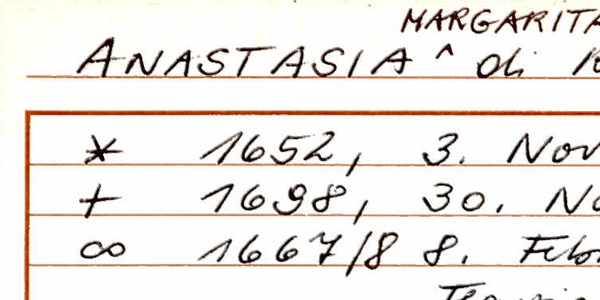 MARGARITA
ANASTASIA ^ di
* 1652, 3. Nov
+ 1698, 30. No
∞ 1667/8 8. Feb